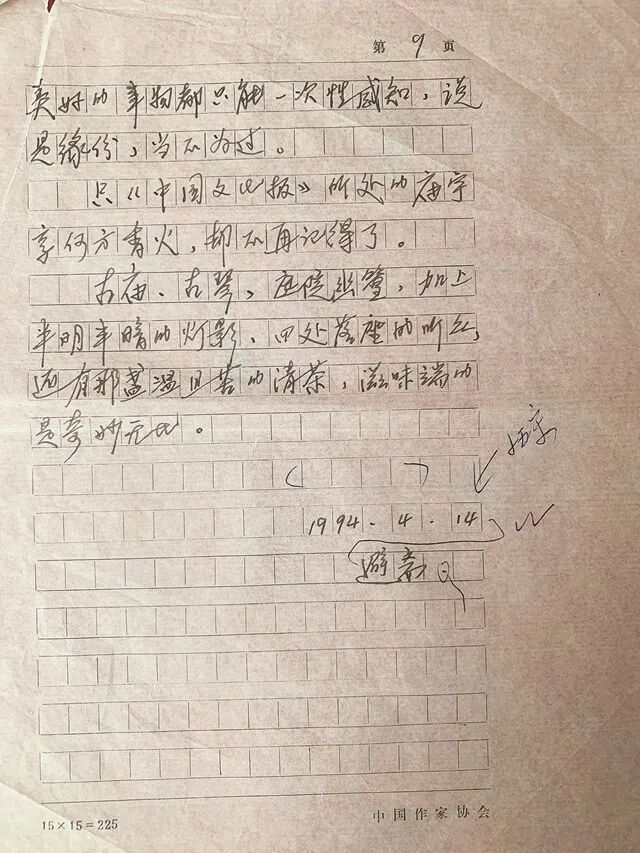 第 9 页
美好的事物都只能一次性感知，说
是缘份，当不为过。
只《中国文化报》所处的庙宇
享何方香火，却不再记得了。
古庙、古琴，庭院幽篁，加上
半明半暗的灯影，四处落座的听众，
还有那盏温且苦的清茶，滋味端的
是奇妙无比。
1994.4.14
避斋
15×15=225
中国作家协会